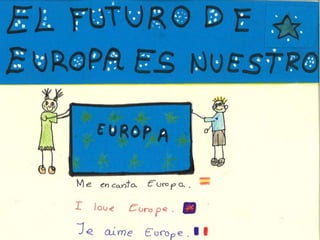 EL FUTURO DE
EUROPA ES NUESTRO
EUROPA
Me encanta Europa.
I love Europe.
Je aime Europe.